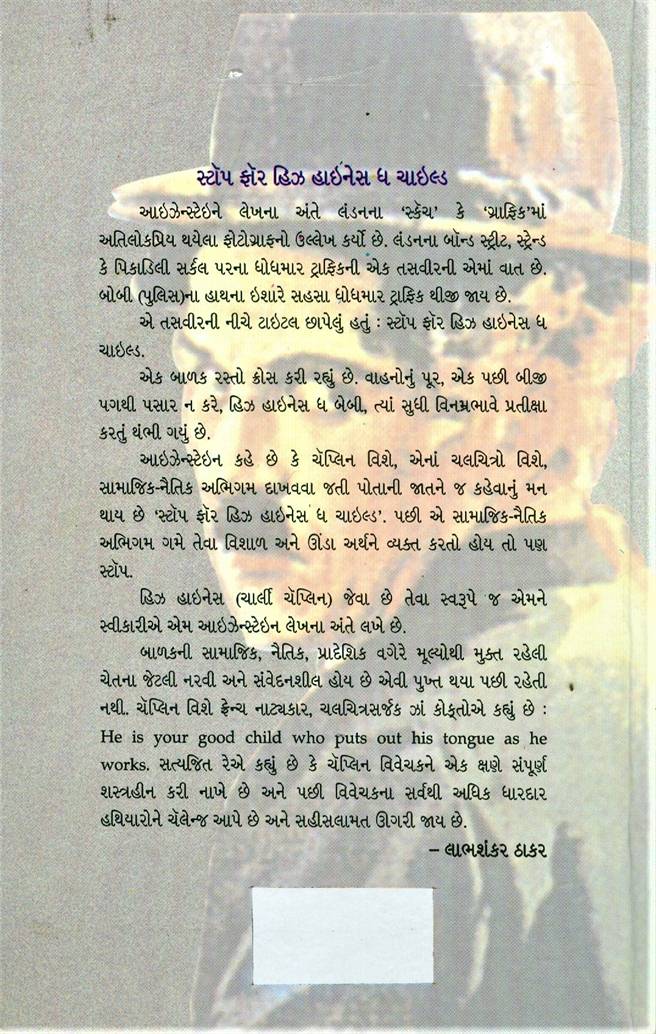 સ્ટૉપ ફૉર હિઝ હાઇનેસ ધ ચાઇલ્ડ
આઇઝેન્સ્ટેઇને લેખના અંતે લંડનના ‘સ્કૅચ’ કે ‘ગ્રાફિક’માં
અતિલોકપ્રિય થયેલા ફોટોગ્રાફનો ઉલ્લેખ કર્યો છે. લંડનના બૉન્ડ સ્ટ્રીટ, સ્ટ્રેન્ડ
કે પિકાડિલી સર્કલ પરના ધોધમાર ટ્રાફિકની એક તસવીરની એમાં વાત છે.
બોબી (પુલિસ)ના હાથના ઇશારે સહસા ધોધમાર ટ્રાફિક થીજી જાય છે.
એ તસવીરની નીચે ટાઇટલ છાપેલું હતું : સ્ટૉપ ફૉર હિઝ હાઇનેસ ધ
ચાઇલ્ડ.
એક બાળક રસ્તો ક્રોસ કરી રહ્યું છે. વાહનોનું પૂર, એક પછી બીજી
પગથી પસાર ન કરે, હિઝ હાઇનેસ ધ બેબી, ત્યાં સુધી વિનમ્રભાવે પ્રતીક્ષા
કરતું થંભી ગયું છે.
આઇઝેન્સ્ટેઇન કહે છે કે ચૅપ્લિન વિશે, એનાં ચલચિત્રો વિશે,
સામાજિક-નૈતિક અભિગમ દાખવવા જતી પોતાની જાતને જ કહેવાનું મન
થાય છે ‘સ્ટૉપ ફૉર હિઝ હાઇનેસ ધ ચાઇલ્ડ’. પછી એ સામાજિક-નૈતિક
અભિગમ ગમે તેવા વિશાળ અને ઊંડા અર્થને વ્યક્ત કરતો હોય તો પણ
સ્ટૉપ.
હિઝ હાઇનેસ (ચાર્લી ચૅપ્લિન) જેવા છે તેવા સ્વરૂપે જ એમને
સ્વીકારીએ એમ આઇઝેન્સ્ટેઇન લેખના અંતે લખે છે.
બાળકની સામાજિક, નૈતિક, પ્રાદેશિક વગેરે મૂલ્યોથી મુક્ત રહેલી
ચેતના જેટલી નરવી અને સંવેદનશીલ હોય છે એવી પુખ્ત થયા પછી રહેતી
નથી. ચૅપ્લિન વિશે ફ્રેન્ચ નાટ્યકાર, ચલચિત્રસર્જક ઝાં કોક્તોએ કહ્યું છે :
He is your good child who puts out his tongue as he
works. સત્યજિત રેએ કહ્યું છે કે ચૅપ્લિન વિવેચકને એક ક્ષણે સંપૂર્ણ
શસ્ત્રહીન કરી નાખે છે અને પછી વિવેચકના સર્વથી અધિક ધારદાર
હથિયારોને ચૅલેન્જ આપે છે અને સહીસલામત ઊગરી જાય છે.
– લાભશંકર ઠાકર